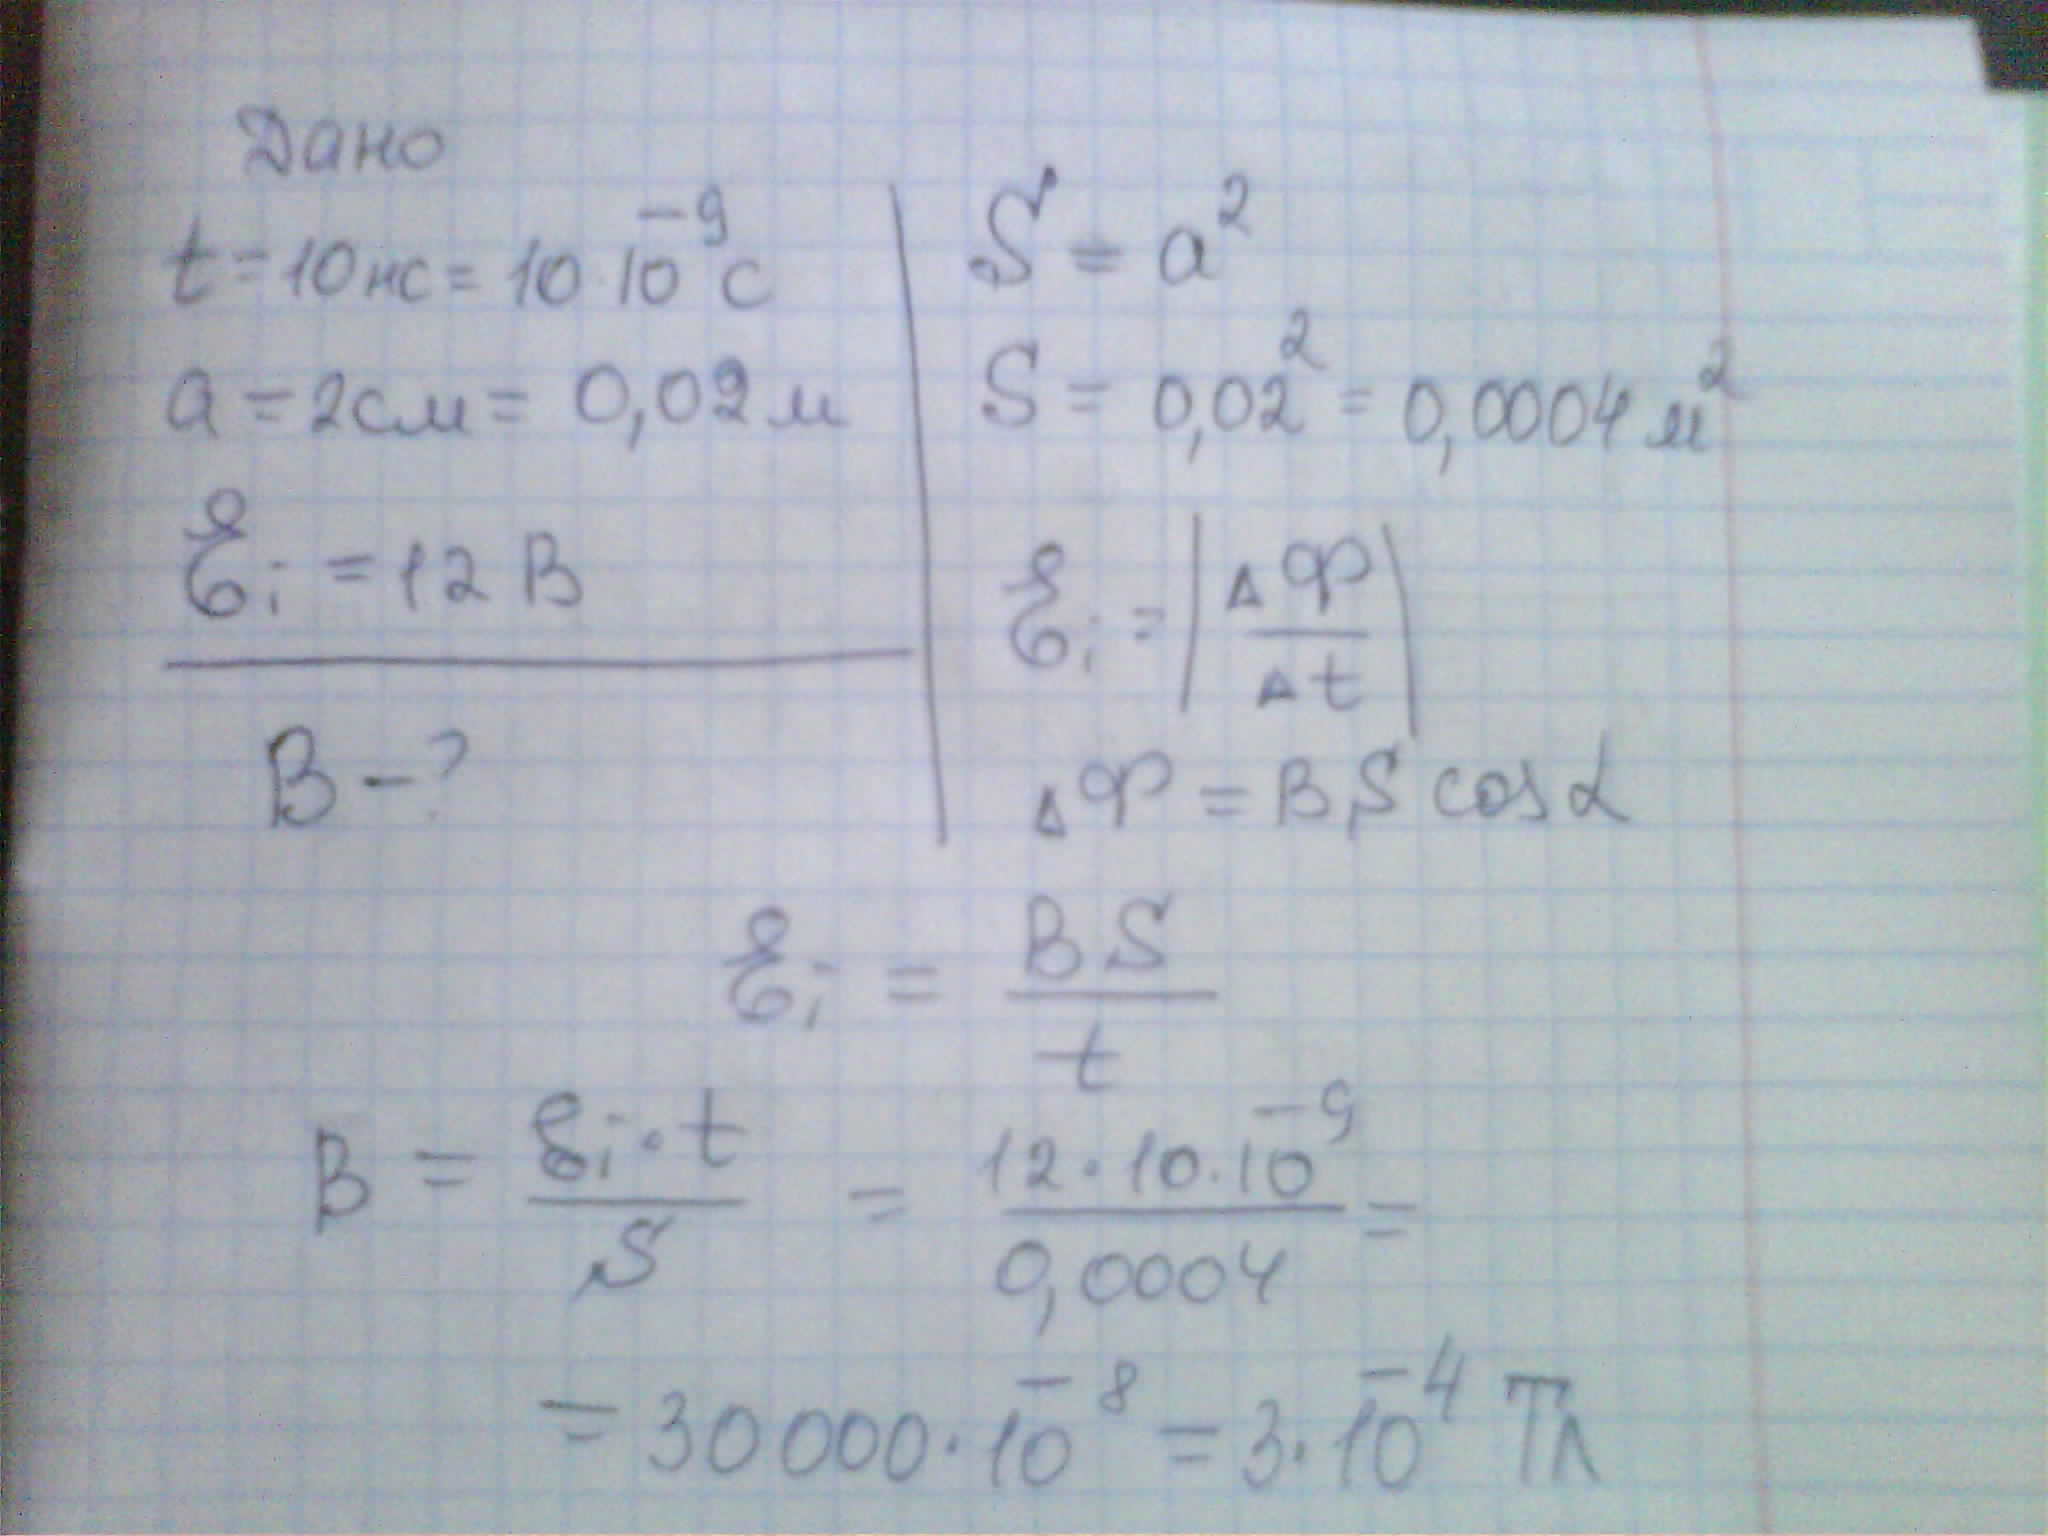 Дано
t = 10нс = 10·10⁻⁹с
a = 2см = 0,02м
ℰi = 12 В
В – ?
S = a²
S = 0,02² = 0,0004 м²
ℰi = |ΔФ/Δt|
ΔФ = BS cosα
ℰi = BS/t
B = ℰi·t/S = 12·10·10⁻⁹/0,0004 =
= 30000·10⁻⁸ = 3·10⁻⁴ Тл